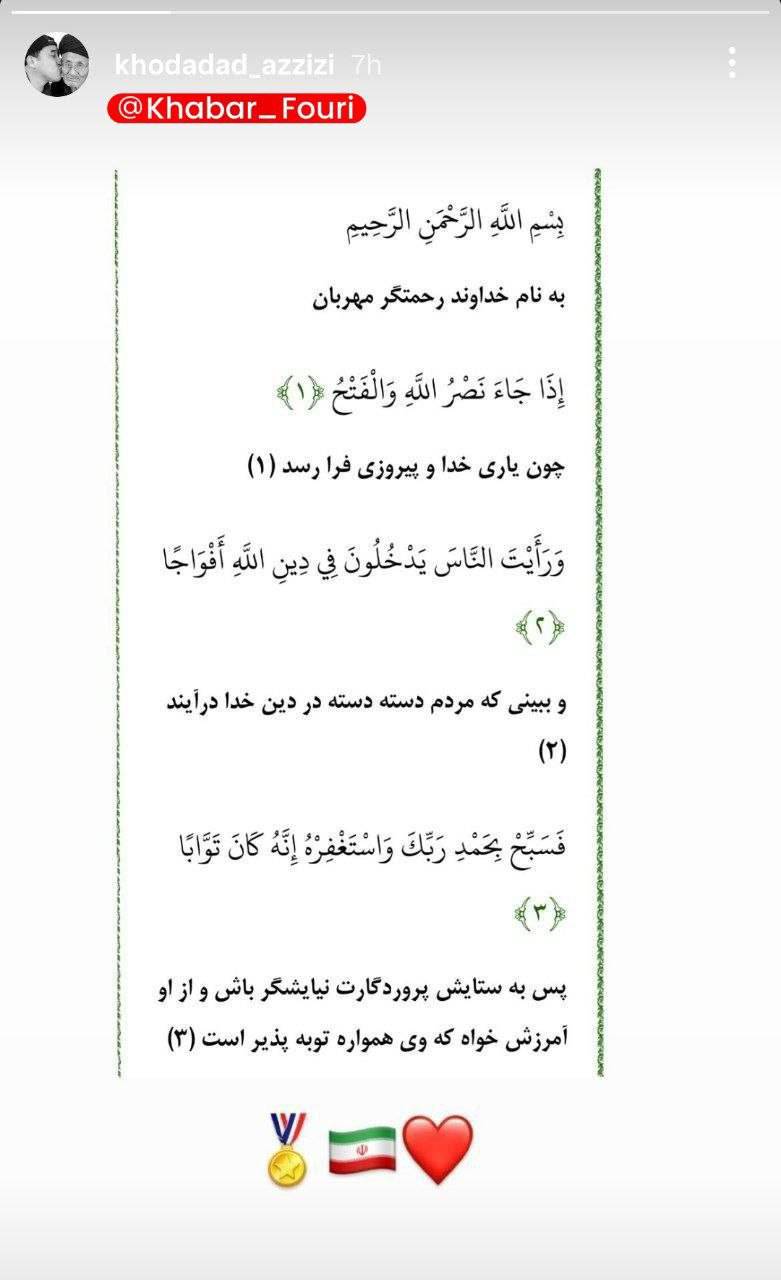 khodadad_azzizi 7h
@Khabar_Fouri
بِسْمِ اللَّهِ الرَّحْمَنِ الرَّحِيمِ
به نام خداوند رحمتگر مهربان
إِذَا جَاءَ نَصْرُ اللَّهِ وَالْفَتْحُ ﴿۱﴾
چون یاری خدا و پیروزی فرا رسد (۱)
وَرَأَيْتَ النَّاسَ يَدْخُلُونَ فِي دِينِ اللَّهِ أَفْوَاجًا
﴿۲﴾
و ببینی که مردم دسته دسته در دین خدا درآیند
(۲)
فَسَبِّحْ بِحَمْدِ رَبِّكَ وَاسْتَغْفِرْهُ إِنَّهُ كَانَ تَوَّابًا
﴿۳﴾
پس به ستایش پروردگارت نیایشگر باش و از او
آمرزش خواه که وی همواره توبه پذیر است (۳)